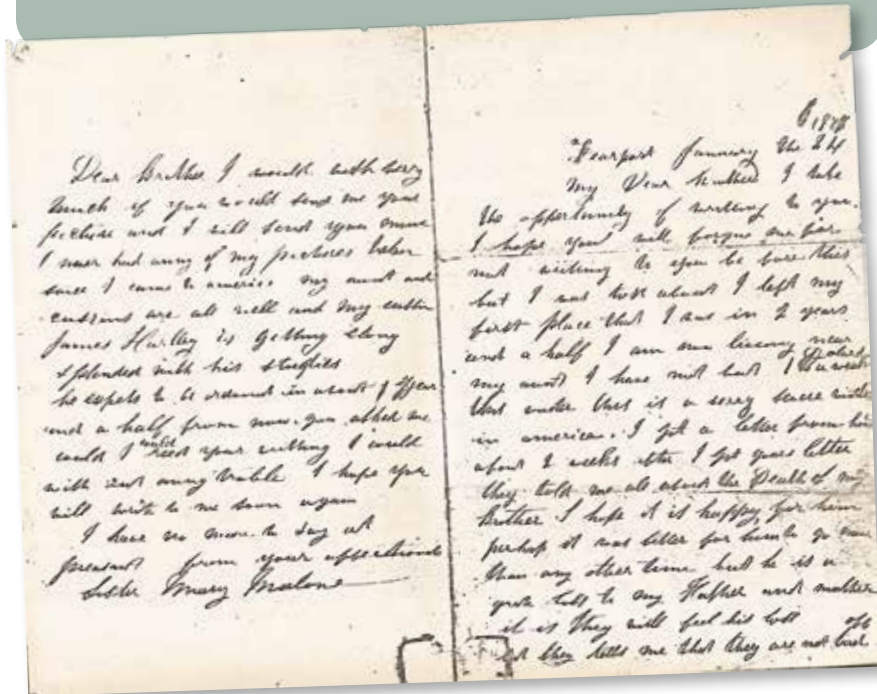 Dear Brother I would with very
much if you would send me your
picture and I will send you mine
I never had anny of my pictures taken
since I came to america my aunt and
are all well and my
James Hurlley is getting along
splended with his studies
he expets to be ordained in about 1 year
and a half from now. you asked me
could I read your writting I could
with out anny truble I hope you
will write to me soon again
I have no more to say at
preasant from your affectionat
Sister Mary Malone
January the 24
my Dear Brother I take
the opportunity of writting to you.
I hope you will forgive me for
not writing to you be fore this
but I was about I left my
first place that I was in 2 years
and a half I am now near
my aunt I have not had 1
that this is a very severe
in america. I got a letter from
about 2 weeks I got your letter
they told me all about the Death of my
Brother I hope it is happy for him
perhap it was better for him to go now
than any other time but he is a
to my and mother
it is they will feel his lost
they tells me that they are not bad
off